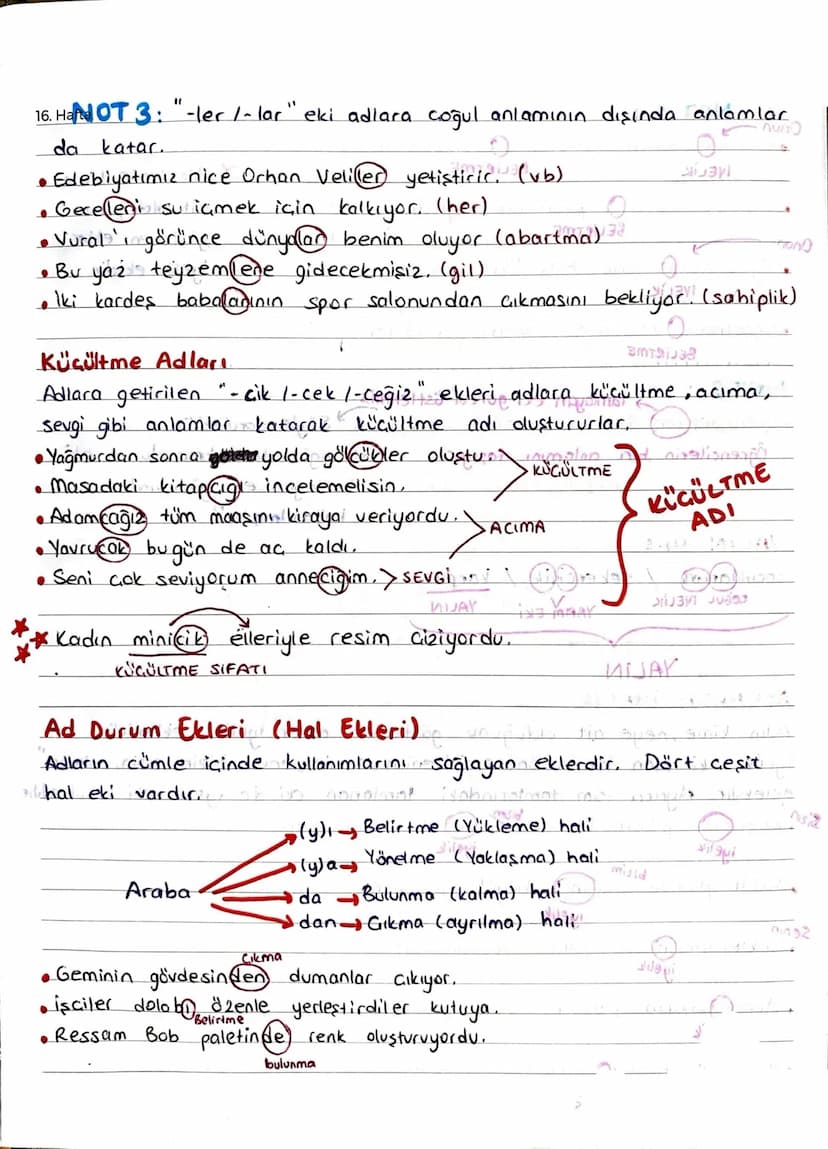 16. Hafta NOT 3: "-ler /-lar" eki adlara çoğul anlamının dışında anlamlar
da katar.
• Edebiyatımız nice Orhan Veliler yetiştirir. (vb)
• Geceleri su içmek için kalkıyor. (her)
• Vural'ı görünce dünyalar benim oluyor (abartma)
• Bu yaz teyzemlere gidecekmisiz. (gil)
• İki kardeş babalarının spor salonundan çıkmasını bekliyor. (sahiplik)
Küçültme Adları
Adlara getirilen "-cik /-cek /-ceğiz" ekleri adlara küçültme, acıma,
sevgi gibi anlamlar katarak küçültme adı oluştururlar.
• Yağmurdan sonra yolda gölcükler oluştu.
• Masadaki kitapçığı incelemelisin.
KÜÇÜLTME
• Adamcağız tüm maaşını kiraya veriyordu.
• Yavrucak bugün de aç kaldı.
ACIMA
• Seni çok seviyorum anneciğim. > SEVGİ
KÜÇÜLTME
ADI
Kadın minicik elleriyle resim çiziyordu.
KÜÇÜLTME SIFATI
Ad Durum Ekleri (Hal Ekleri)
Adların cümle içinde kullanımlarını sağlayan eklerdir. Dört çeşit
hal eki vardır.
Araba
(y)ı → Belirtme (Yükleme) hali
(y)a → Yönelme (Yaklaşma) hali
da → Bulunma (kalma) hali
dan → Çıkma (ayrılma) hali
Çıkma
• Geminin gövdesinden dumanlar çıkıyor.
• işçiler dolabı özenle yerleştirdiler kutuya.
Belirtme
• Ressam Bob paletinde renk oluşturuyordu.
bulunma